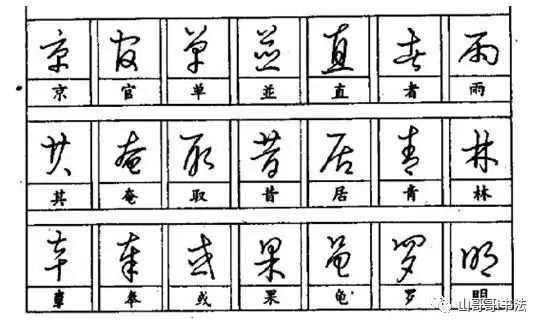 京 官 单 並 直 者 雨
京 官 单 並 直 者 雨
其 奄 取 昔 居 青 林
其 奄 取 昔 居 青 林
章 奉 或 果 龟 罗 明
章 奉 或 果 龟 罗 明
山哥哥书法